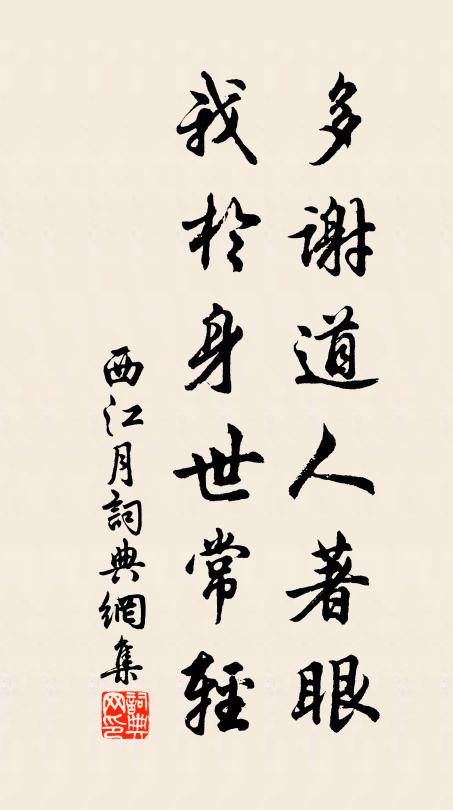 多謝道人著眼
我於身世常輕
西江月詞典網集
詞典
网印